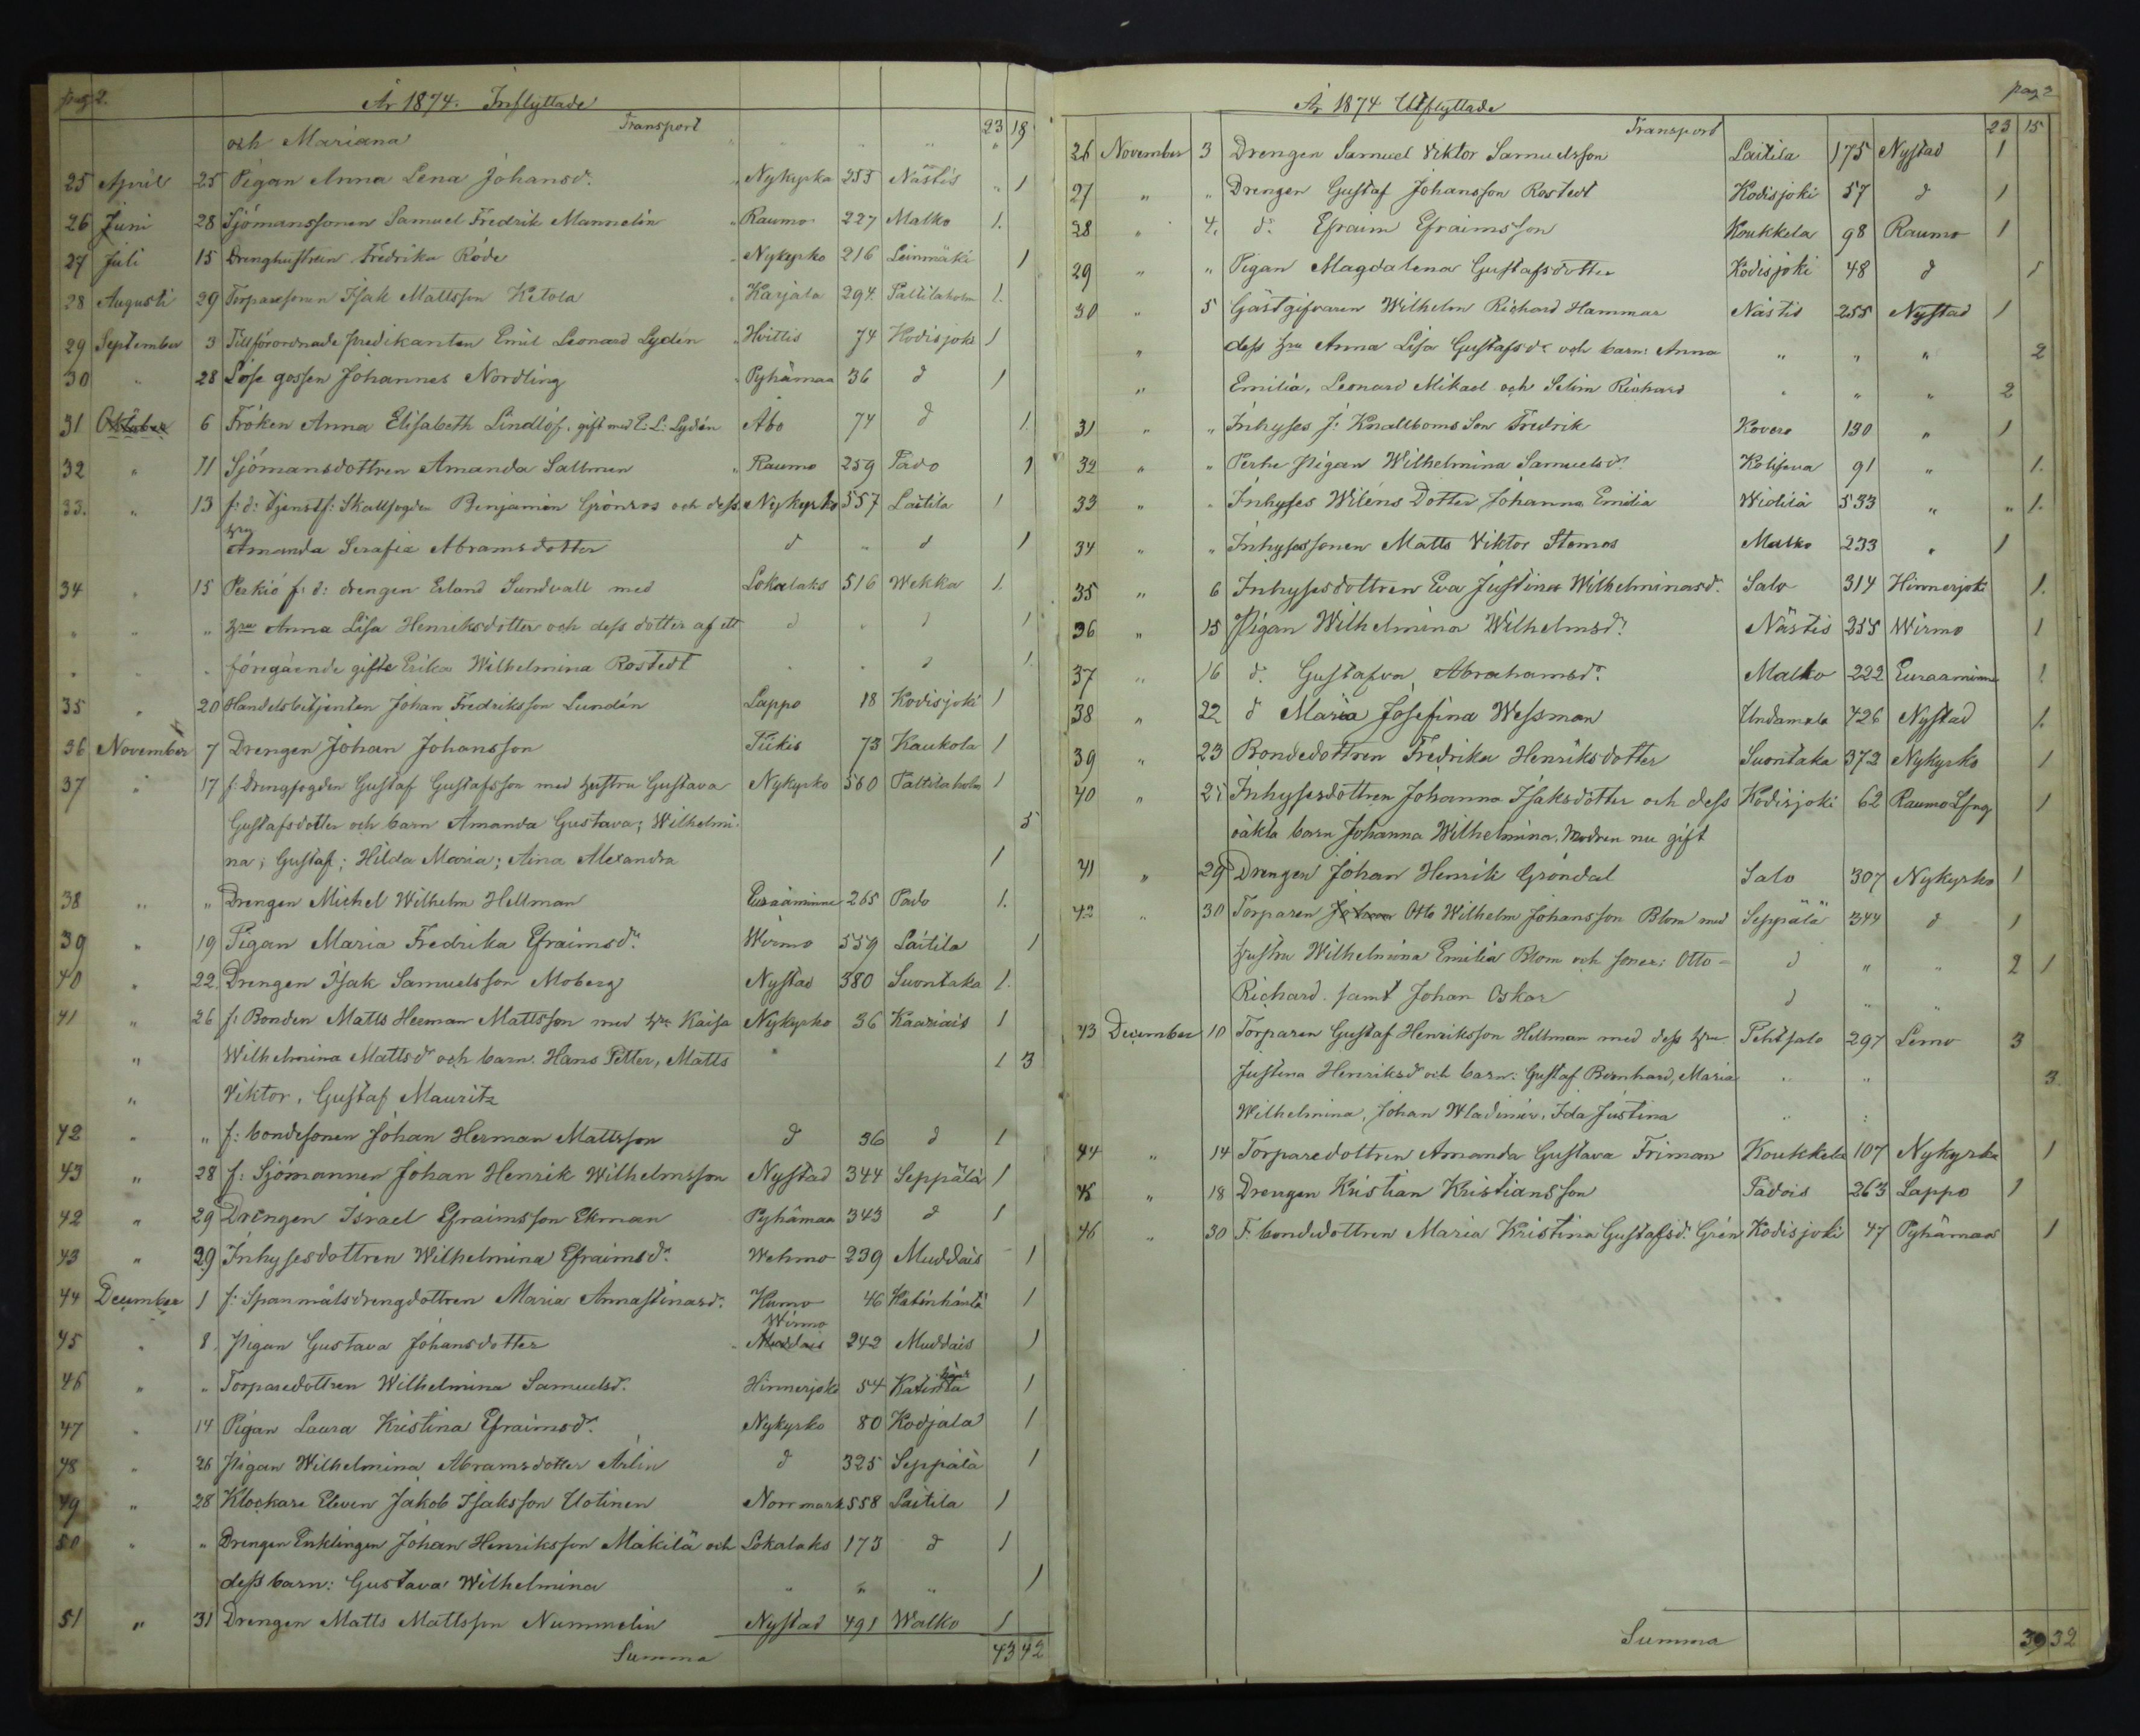 pag 2.
År 1874. Inflyttade
Transport 23 18
och Mariana " " " "
25 April 25 Pigan Anna Lena Johansd:r " Nykyrka 255 Nästis " 1
26 Juni 28 Sjömanssonen Samuel Fredrik Mannelin " Raumo 227 Malko 1.
27 Juli 15 Drenghustrun Fredrika Röde " Nykyrko 216 Leinmäki 1
28 Augusti 29 Torparesonen Isak Mattsson Ketola " Karjala 294. Palttilaholm 1.
29 September 3 Tillförordnade predikanten Emil Leonard Lydén " Hvittis 74 Kodisjoki 1
30 " 28 Löse gossen Johannes Nordling " Pyhämaa 36 d 1
31 Oktober 6 Fröken Anna Elisabeth Lindlöf, gift med E: L: Lydén Åbo 74 d 1.
32 " 11 Sjömansdottren Amanda Sallmen " Raumo 259 Pado 1
33. " 13 f: d: Tjenstf: Skallfogden Benjamin Grönros och dess Nykyrko 557 Laitila 1
hru Amanda Serafia Abramsdotter d " d 1
34 " 15 Perkiö f: d: drengen Erland Sundvall med Lokalaks 516 Wekka 1.
" " " hru Anna Lisa Henriksdotter och dess dotter af ett d " d 1
" " " föregående gifte Erika Wilhelmina Rostedt " " d 1.
35 " 20 Handelsbetjenten Johan Fredriksson Lundén Lappo 18 Kodisjoki 1
36 November 7 Drengen Johan Johansson Tükis 73 Kaukola 1
37 " 17 f: Drengfogden Gustaf Gustafsson med hustru Gustava Nykyrko 560 Palttilaholm 1
Gustafsdotter och barn Amanda Gustava; Wilhelmi- 5
na; Gustaf; Hilda Maria; Aina Alexandra 1
38 " " Drengen Michel Wilhelm Hellman Euraåminne 265 Pado 1.
39 " 19 Pigan Maria Fredrika Efraimsd:r Wirmo 559 Laitila 1
40 " 22. Drengen Isak Samuelsson Moberg Nystad 380 Suontaka 1.
41 " 26 f: Bonden Matts Herman Mattsson med hru Kaisa Nykyrko 36 Kaariais 1
" Wilhelmina Mattsdr och barn: Hans Petter, Matts " 1 3
" Viktor, Gustaf Mauritz
42 " " f: bondesonen Johan Herman Mattsson d 36 d 1
43 " 28 f: Sjömannen Johan Henrik Wilhelmsson Nystad 344 Seppälä 1
42 " 29 Drengen Israel Efraimsson Ekman Pyhämaa 343 d 1
43 " 29 Inhysesdottren Wilhelmina Efraimsd:r Wehmo 239 Muddais 1
44 December 1 f: Spanmålsdrengdottren Maria Annastinasd:r 46 Katinhäntä 1
Wirmo
45 " 8. Pigan Gustava Johansdotter " Muddais 242 Muddais 1
46 " " Torparedottren Wilhelmina Samuelsd:r Hinnerjoki 54 Katinhäntä 1
47 " 14 Pigan Laura Kristina Efraimsd:r Nykyrko 80 Kodjala 1
48 " 26 Pigan Wilhelmina Abramsdotter Arlin d 325 Seppälä 1
49 " 28 Klockare Eleven Jakob Isaksson Uotinen Norrmark 558 Laitila 1
50 " " Drengen Enklingen Johan Henriksson Mäkilä och Lokalaks 173 d 1
dess barn: Gustava Wilhelmina " " " 1
51 " 31 Drengen Matts Mattsson Nummelin Nystad 491 Walko 1
Summa 43 42
pag 2
År 1874 Utflyttade
Transport 23 15
26 November 3 Drengen Samuel Viktor Samuelsson Laitila 175 Nystad 1
27 " " Drengen Gustaf Johansson Rostedt Kodisjoki 57 d 1
28 " 4. d:r Efraim Efraimsson Koukkela 98 Raumo 1
29 " " Pigan Magdalena Gustafsdotter Kodisjoki 48 d 1
30 " 5 Gästgifvaren Wilhelm Richard Hammar Nästis 255 Nystad 1
" dess hru Anna Lisa Gustafsdr och barn: Anna " " " 2
" Emilia, Leonard Mikael och Selim Richard " " " 2
31 " " Inhyses J: Knallboms Son Fredrik Kovero 130 " 1
32 " " Perhe Pigan Wilhelmina Samuelsd:r 91 " 1.
33 " " Inhyses Wiléns Dotter Johanna Emilia Widilä 533 " " 1.
34 " " Inhysessonen Matts Viktor Stenros Malko 233 " 1
35 " 6 Inhysesdottren Eva Justina Wilhelminasd:r Salo 314 Hinnerjoki 1.
36 " 15 Pigan Wilhelmina Wilhelmsd:r Nästis 255 Wirmo 1
37 " 16 d:r Gustafva Abrahamsd:r Malko 222 Euraaminne 1.
38 " 22 d Maria Josefina Wessman Undamala 426 Nystad 1.
39 " 23 Bondedottren Fredrika Henriksdotter Suontaka 372 Nykyrko 1
40 " 25 Inhysesdottren Johanna Isaksdotter och dess Kodisjoki 62 Raumo Lfsng 1
oäkta barn Johanna Wilhelmina. Modren nu gift
41 " 29 Drengen Johan Henrik Gröndal Salo 307 Nykyrko 1
42 " 30 Torparen Johan Otto Wilhelm Johansson Blom med Seppälä 344 d 1
hustru Wilhelmina Emilia Blom och söner: Otto= d " " 2 1
Richard samt Johan Oskar d " "
43 December 10 Torparen Gustaf Henriksson Hellman med dess hru Pehtsalo 297 Lemo 3
Justina Henriksdr och barn: Gustaf Bernhard, Maria " " 3
Wilhelmina, Johan Wladimir, Ida Justina " "
44 " 14 Torparedottren Amanda Gustava Friman Koukkela 107 Nykyrka 1
45 " 18 Drengen Kristian Kristiansson Padois 263 Lappo 1
46 " 30 F. bondedottren Maria Kristina Gustafsd:r Grén Kodisjoki 47 Pyhämaa 1
Summa 39 32